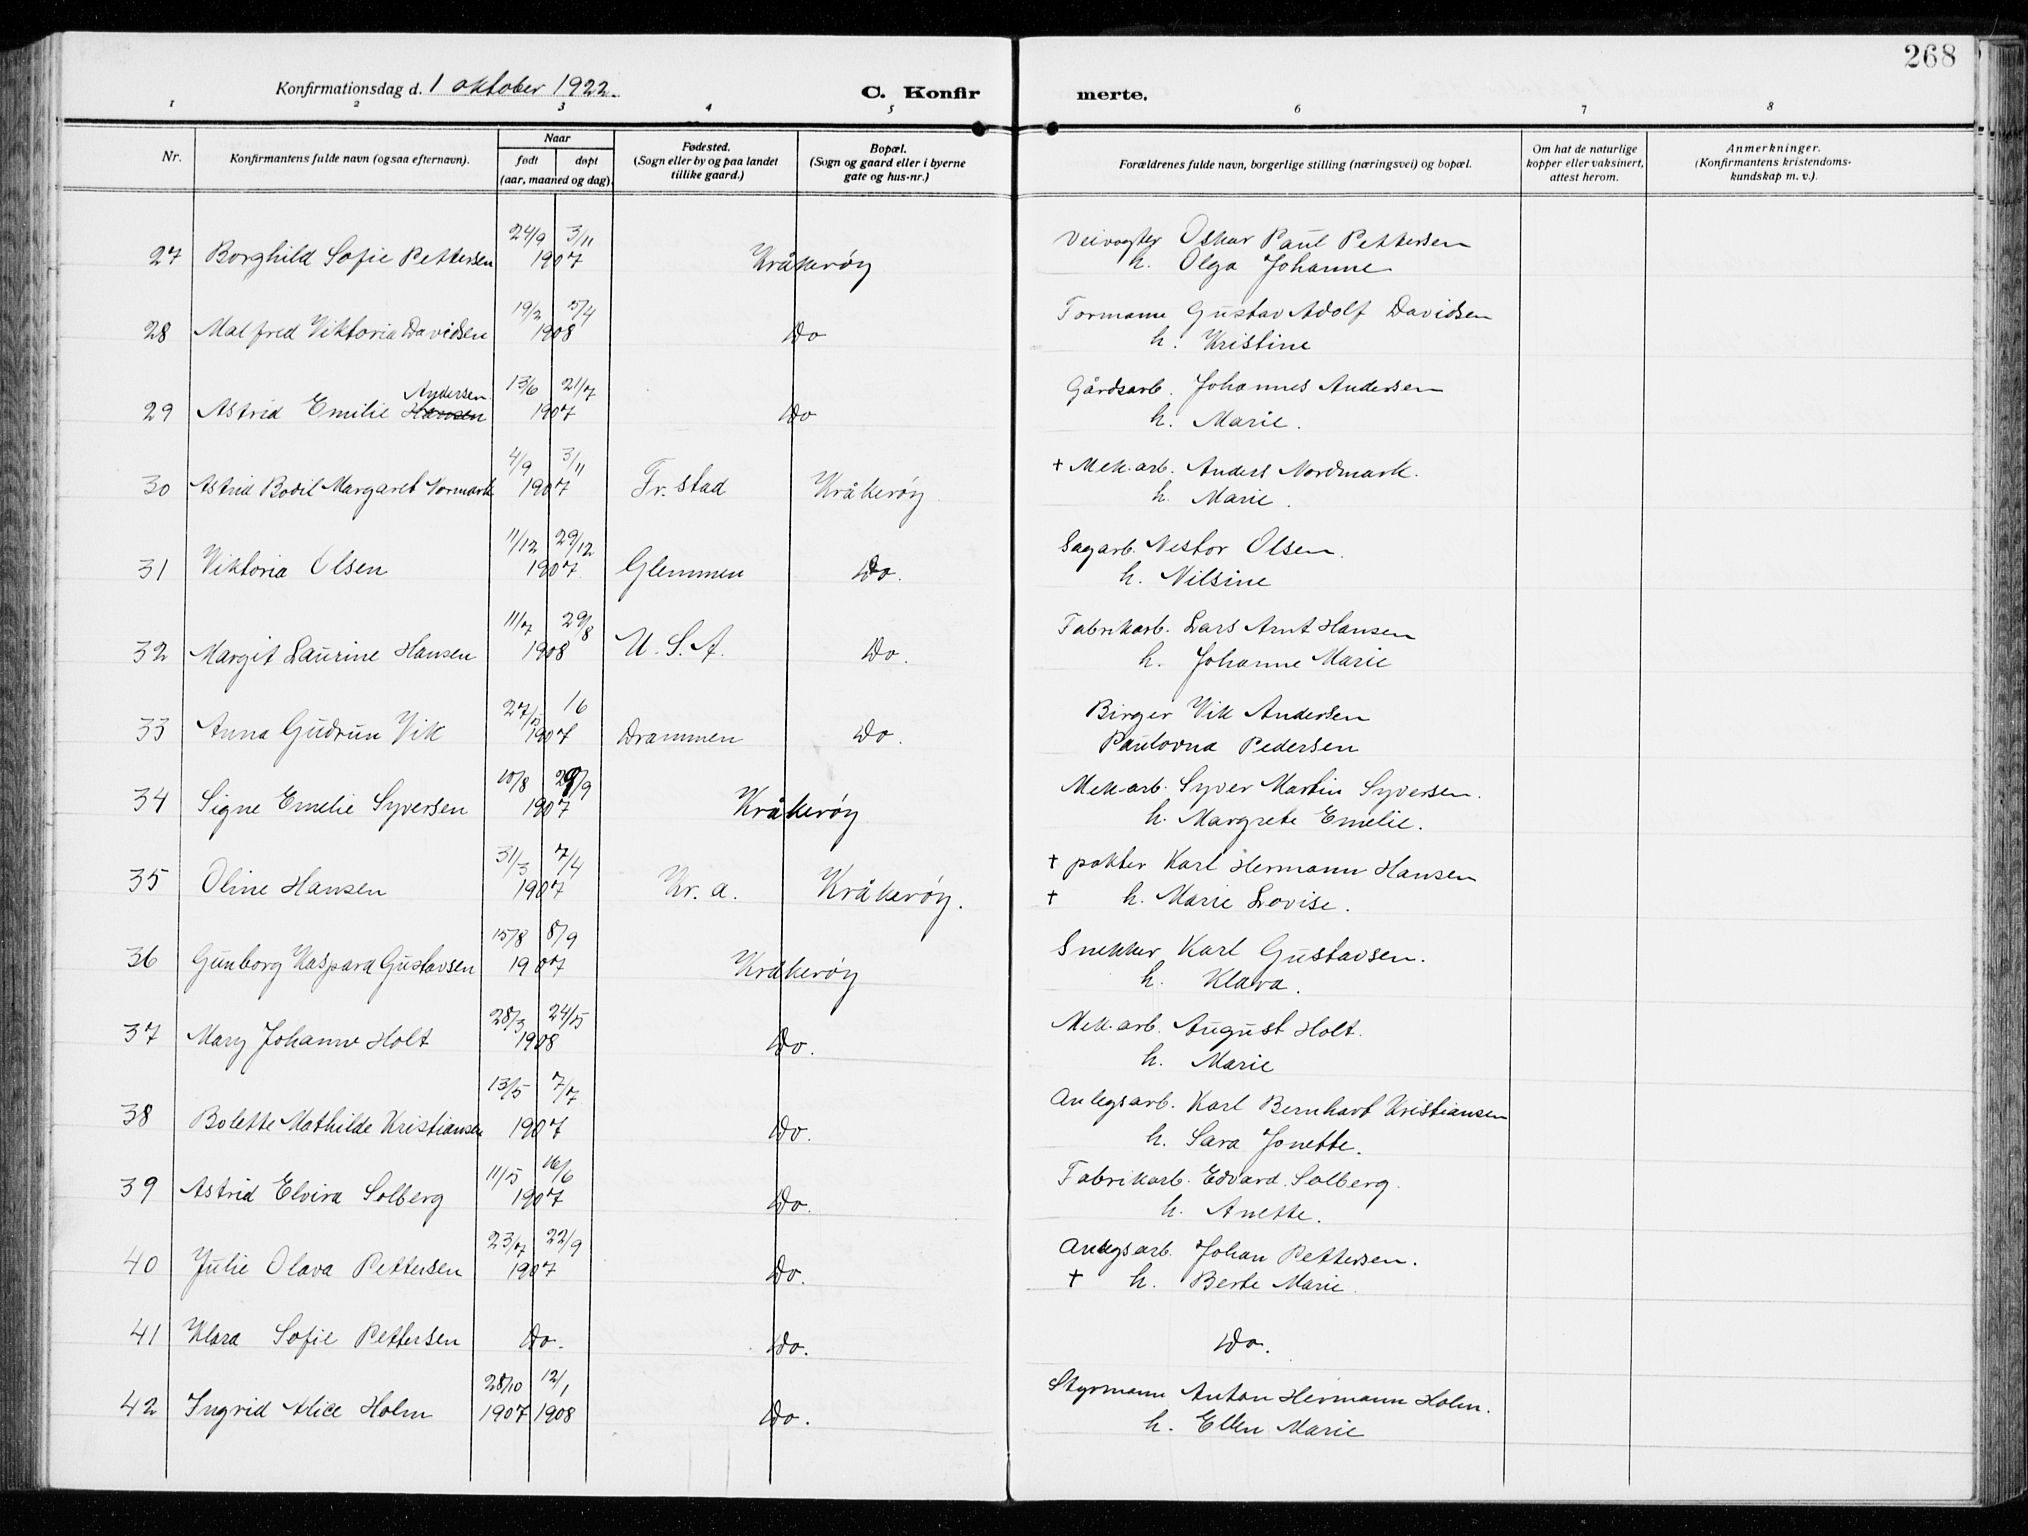 268
Konfirmationsdag d. 1 oktober 1922.
C. Konfir merte.
1 2 3 4 5 6 7 8
Nr.
Konfirmantens fulde navn (ogsaa efternavn).
Naar
født døpt
(aar, maaned og dag).
Fødested.
(Sogn eller by og paa landet
tillike gaard.)
Bopæl.
(Sogn og gaard eller i byerne
gate og hus-nr.)
Forældrenes fulde navn, borgerlige stilling (næringsvei) og bopæl.
Om hat de naturlige
kopper eller vaksinert,
attest herom.
Anmerkninger.
(Konfirmantens kristendoms-
kundskap m. v.).
24/9 3/11 Veivogter Oskar Paul Pettersen
27 Borghild Sofie Pettersen 1907 Kråkerøy h. Olga Johanne
19/2 5/4 Formann Gustav Adolf Davidsen
28 Malfred Viktoria Davidsen 1908 Do h. Kristine
Andersen 13/6 21/7 Gårdsarb. Johannes Andersen
29 Astrid Emilie Hansen 1907 Do h. Marie.
4/9 3/11 + Mek. arb. Anders Nordmark.
30 Astrid Bodil Margaret Normark 1907 Fr. stad Kråkerøy h. Marie.
11/12 29/12 Sagarb. Nestor Olsen.
31 Viktoria Olsen 1907 Glemmen Do. h. Nilsine
11/7 29/8 Fabrikarb. Lars Arnt Hansen
32 Margit Laurine Hansen 1908 U. S. A. Do. h. Johanne Marie
27/5 16 Birger Vik Andersen
33 Anna Gudrun Vik 1907 Drammen Do. Paulovna Pedersen
10/8 29/9 Mek. arb. Syver Martin Syversen.
34 Signe Emelie Syversen 1907 Kråkerøy h. Margrete Emelie.
31/3 7/4 + pakter Karl Hermann Hansen
35 Oline Hansen 1907 Kr. a. Kråkerøy. + h. Marie Lovise.
15/8 8/9 Snekker Karl Gustavsen.
36 Gunborg Kaspara Gustavsen 1907 Kråkerøy h. Klara.
28/3 24/5 Mek. arb. August Holt.
37 Mary Johanne Holt 1908 Do. h. Marie
13/5 7/7 Anlegsarb. Karl Bernhart Kristiansen
38 Bolette Mathilde Kristiansen 1907 Do. h. Sara Jonette.
11/5 16/6 Fabrikarb. Edvard Solberg.
39 Astrid Elvira Solberg 1907 Do. h. Anette.
23/7 22/9 Anlegsarb. Johan Pettersen.
40 Julie Olava Pettersen 1907 Do. + h. Berte Marie.
41 Klara Sofie Pettersen Do. Do. Do.
28/10 12/1 Styrmann Anton Hermann Holm.
42 Ingrid Alice Holm 1907 1908 Do. h. Ellen Marie